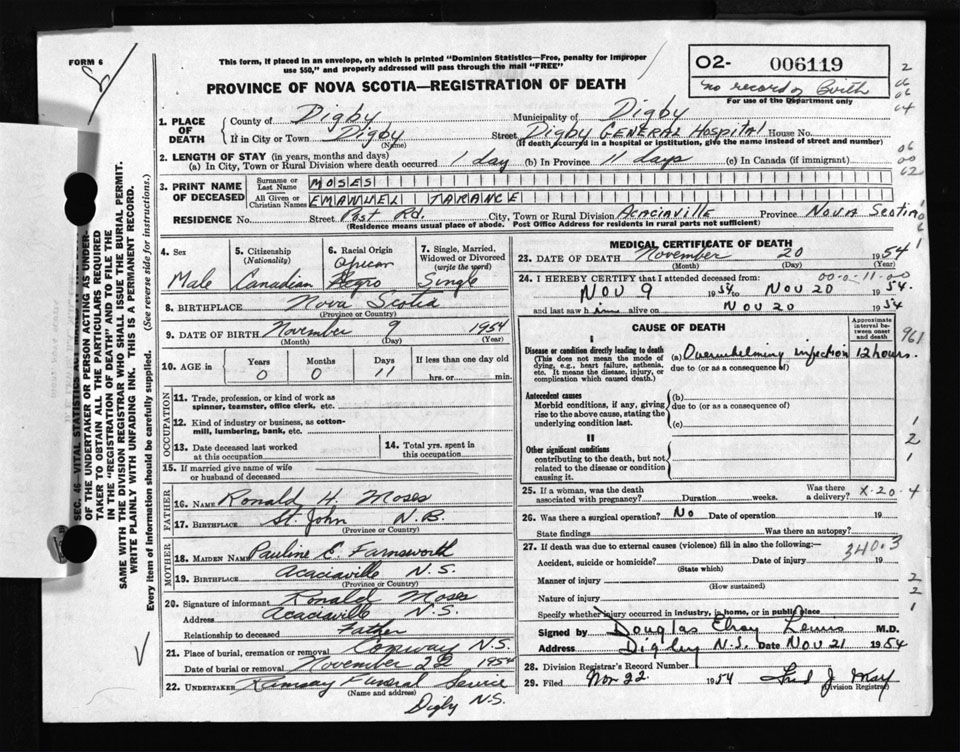 FORM 6
This form, if placed in an envelope, on which is printed "Dominion Statistics—Free, penalty for improper
use $50," and properly addressed will pass through the mail "FREE"
O2- 006119
no record of Birth
For use of the Department only
PROVINCE OF NOVA SCOTIA—REGISTRATION OF DEATH
2
06
06
64
1. PLACE OF DEATH
County of Digby Municipality of Digby
If in City or Town Digby Street Digby GENERAL Hospital House No.
(Name) (If death occurred in a hospital or institution, give the name instead of street and number)
2. LENGTH OF STAY (in years, months and days)
(a) In City, Town or Rural Division where death occurred 1 day (b) In Province 11 days (c) In Canada (if immigrant)
06
00
62
3. PRINT NAME OF DECEASED
Surname or Last Name MOSES
All Given or Christian Names EMANUEL TARANCE
RESIDENCE No. Street Post Rd. City, Town or Rural Division Acaciaville Province NOVA Scotia
(Residence means usual place of abode. Post Office Address for residents in rural parts not sufficient)
4. Sex Male
5. Citizenship (Nationality) Canadian
6. Racial Origin African Negro
7. Single, Married, Widowed or Divorced (write the word) Single
8. BIRTHPLACE Nova Scotia
(Province or Country)
9. DATE OF BIRTH November 9 1954
(Month) (Day) (Year)
10. AGE in Years 0 Months 0 Days 11 If less than one day old
hrs. or min.
OCCUPATION
11. Trade, profession, or kind of work as
spinner, teamster, office clerk, etc.
12. Kind of industry or business, as cotton-
mill, lumbering, bank, etc.
13. Date deceased last worked at this occupation
14. Total yrs. spent in this occupation
15. If married give name of wife
or husband of deceased
FATHER
16. NAME Ronald H. Moses
17. BIRTHPLACE St. John N.B.
(Province or Country)
MOTHER
18. MAIDEN NAME Pauline E. Farnsworth
19. BIRTHPLACE Acaciaville N.S.
(Province or Country)
20. Signature of informant Ronald Moses
Address Acaciaville N.S.
Relationship to deceased Father
21. Place of burial, cremation or removal Conway N.S.
Date of burial or removal November 22 1954
22. UNDERTAKER Ramsay Funeral Service
(Name and address)
Digby N.S.
MEDICAL CERTIFICATE OF DEATH
23. DATE OF DEATH November 20 1954
(Month) (Day) (Year)
24. I HEREBY CERTIFY that I attended deceased from: 00-0-11-00
NOV 9 1954 to NOV 20 1954.
and last saw him alive on NOV 20 1954
CAUSE OF DEATH
Approximate interval between onset and death
I
Disease or condition directly leading to death
(This does not mean the mode of
dying, e.g., heart failure, asthenia,
etc. It means the disease, injury, or
complication which caused death.)
(a) Overwhelming infection 12 hours.
due to (or as a consequence of)
961
Antecedent causes
Morbid conditions, if any, giving
rise to the above cause, stating the
underlying condition last.
(b)
due to (or as a consequence of)
(c)
II
Other significant conditions
contributing to the death, but not
related to the disease or condition
causing it.
1
2
1
25. If a woman, was the death
associated with pregnancy? Duration weeks. Was there a delivery? X-20-4
26. Was there a surgical operation? No Date of operation 19
State findings Was there an autopsy?
27. If death was due to external causes (violence) fill in also the following:—
340.3
Accident, suicide or homicide? Date of injury 19
(State which)
Manner of injury
(How sustained)
Nature of injury
Specify whether injury occurred in industry, in home, or in public place
2
2
1
Signed by Douglas Elroy Lewis M.D.
Address Digby N.S. Date Nov 21 1954
28. Division Registrar's Record Number
29. Filed Nov 22 1954 Fred J. May
(Division Registrar)
SEC. 46 VITAL STATISTICS ACT
OF THE UNDERTAKER OR PERSON ACTING AS UNDER-
TAKER TO OBTAIN ALL THE PARTICULARS REQUIRED
IN THE "REGISTRATION OF DEATH" AND TO FILE THE
SAME WITH THE DIVISION REGISTRAR WHO SHALL ISSUE THE BURIAL PERMIT.
WRITE PLAINLY WITH UNFADING INK. THIS IS A PERMANENT RECORD.
Every item of information should be carefully supplied. (See reverse side for instructions.)